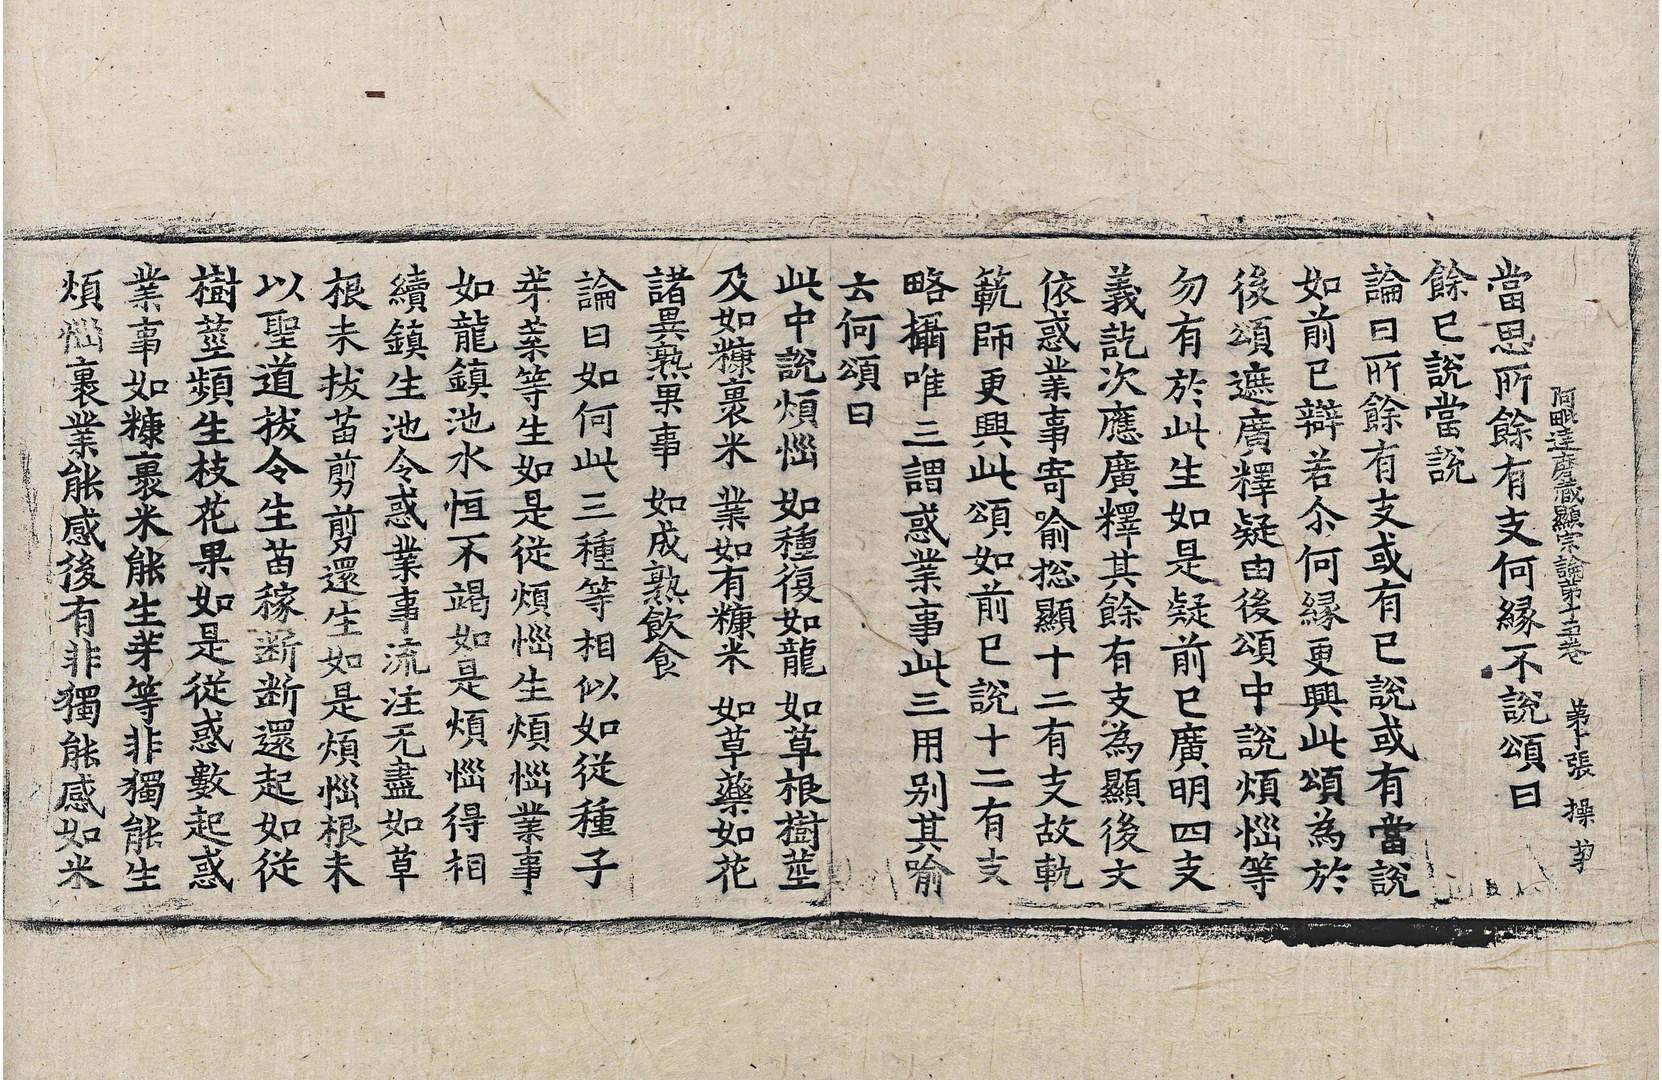 阿毗達磨藏顯宗論第十五卷 第 張 操
當思所餘有支何緣不說頌曰
餘已說當說
論曰所餘有支或有已說或有當說
如前已辯若尒何緣更興此頌為於
後頌遮廣釋疑由後頌中說煩惱等
勿有於此生如是疑前已廣明四支
義訖次應廣釋其餘有支為顯後文
依惑業事寄喻揔顯十二有支故軌
範師更興此頌如前已說十二有支
略攝唯三謂惑業事此三用別其喻
云何頌曰
此中說煩惱 如種復如龍 如草根樹莖
及如糠裹米 業如有糠米 如草藥如花
諸異熟果事 如成熟飲食
論曰如何此三種等相似如從種子
芽葉等生如是從煩惱生煩惱業事
如龍鎮池水恒不竭如是煩惱得相
續鎮生池令惑業事流注无盡如草
根未拔苗剪剪還生如是煩惱根未
以聖道拔令生苗稼断断還起如從
樹莖頻生枝花果如是從惑數起惑
業事如糠裹米能生芽等非獨能生
煩惱裹業能感後有非獨能感如米